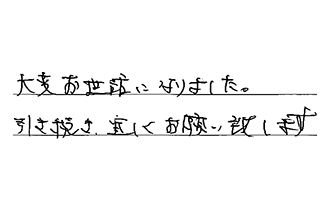 大変お世話になりました。
引き続き、宜しくお願い致します